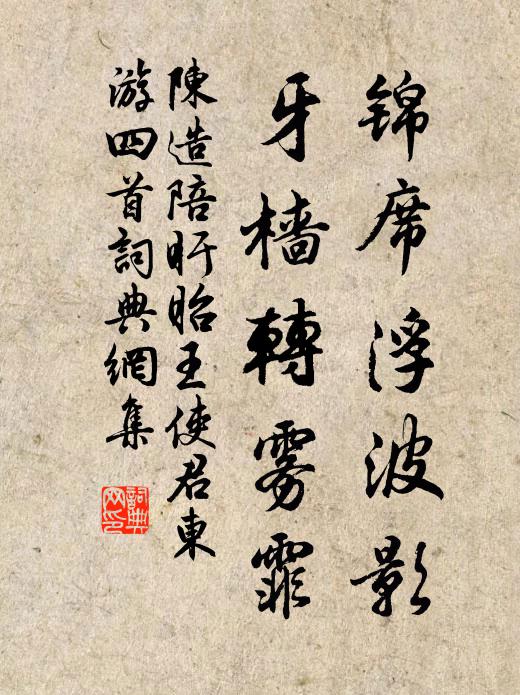 锦席浮波影
牙樯轉雾霏
陳造陪盱眙王使君東
游四首詞典網集
詞典网印